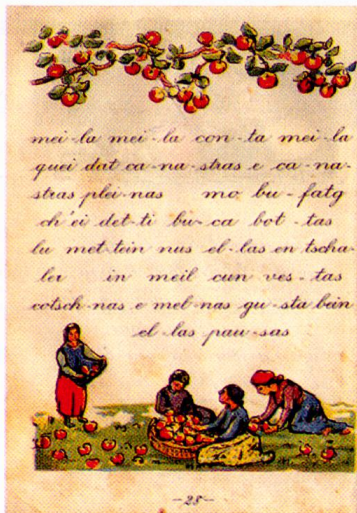 mei-la mei-la con-ta mei-la
quei dat ca-na-stras e ca-na-
stras plei-nas mo bu-fatg
ch'ei det-ti bu-ca bot-tas
lu met-tein nus el-las en tscha-
ler in meil cun ves-tas
cotsch-nas e mel-nas gu-sta bein
el-las pau-sas
-28-